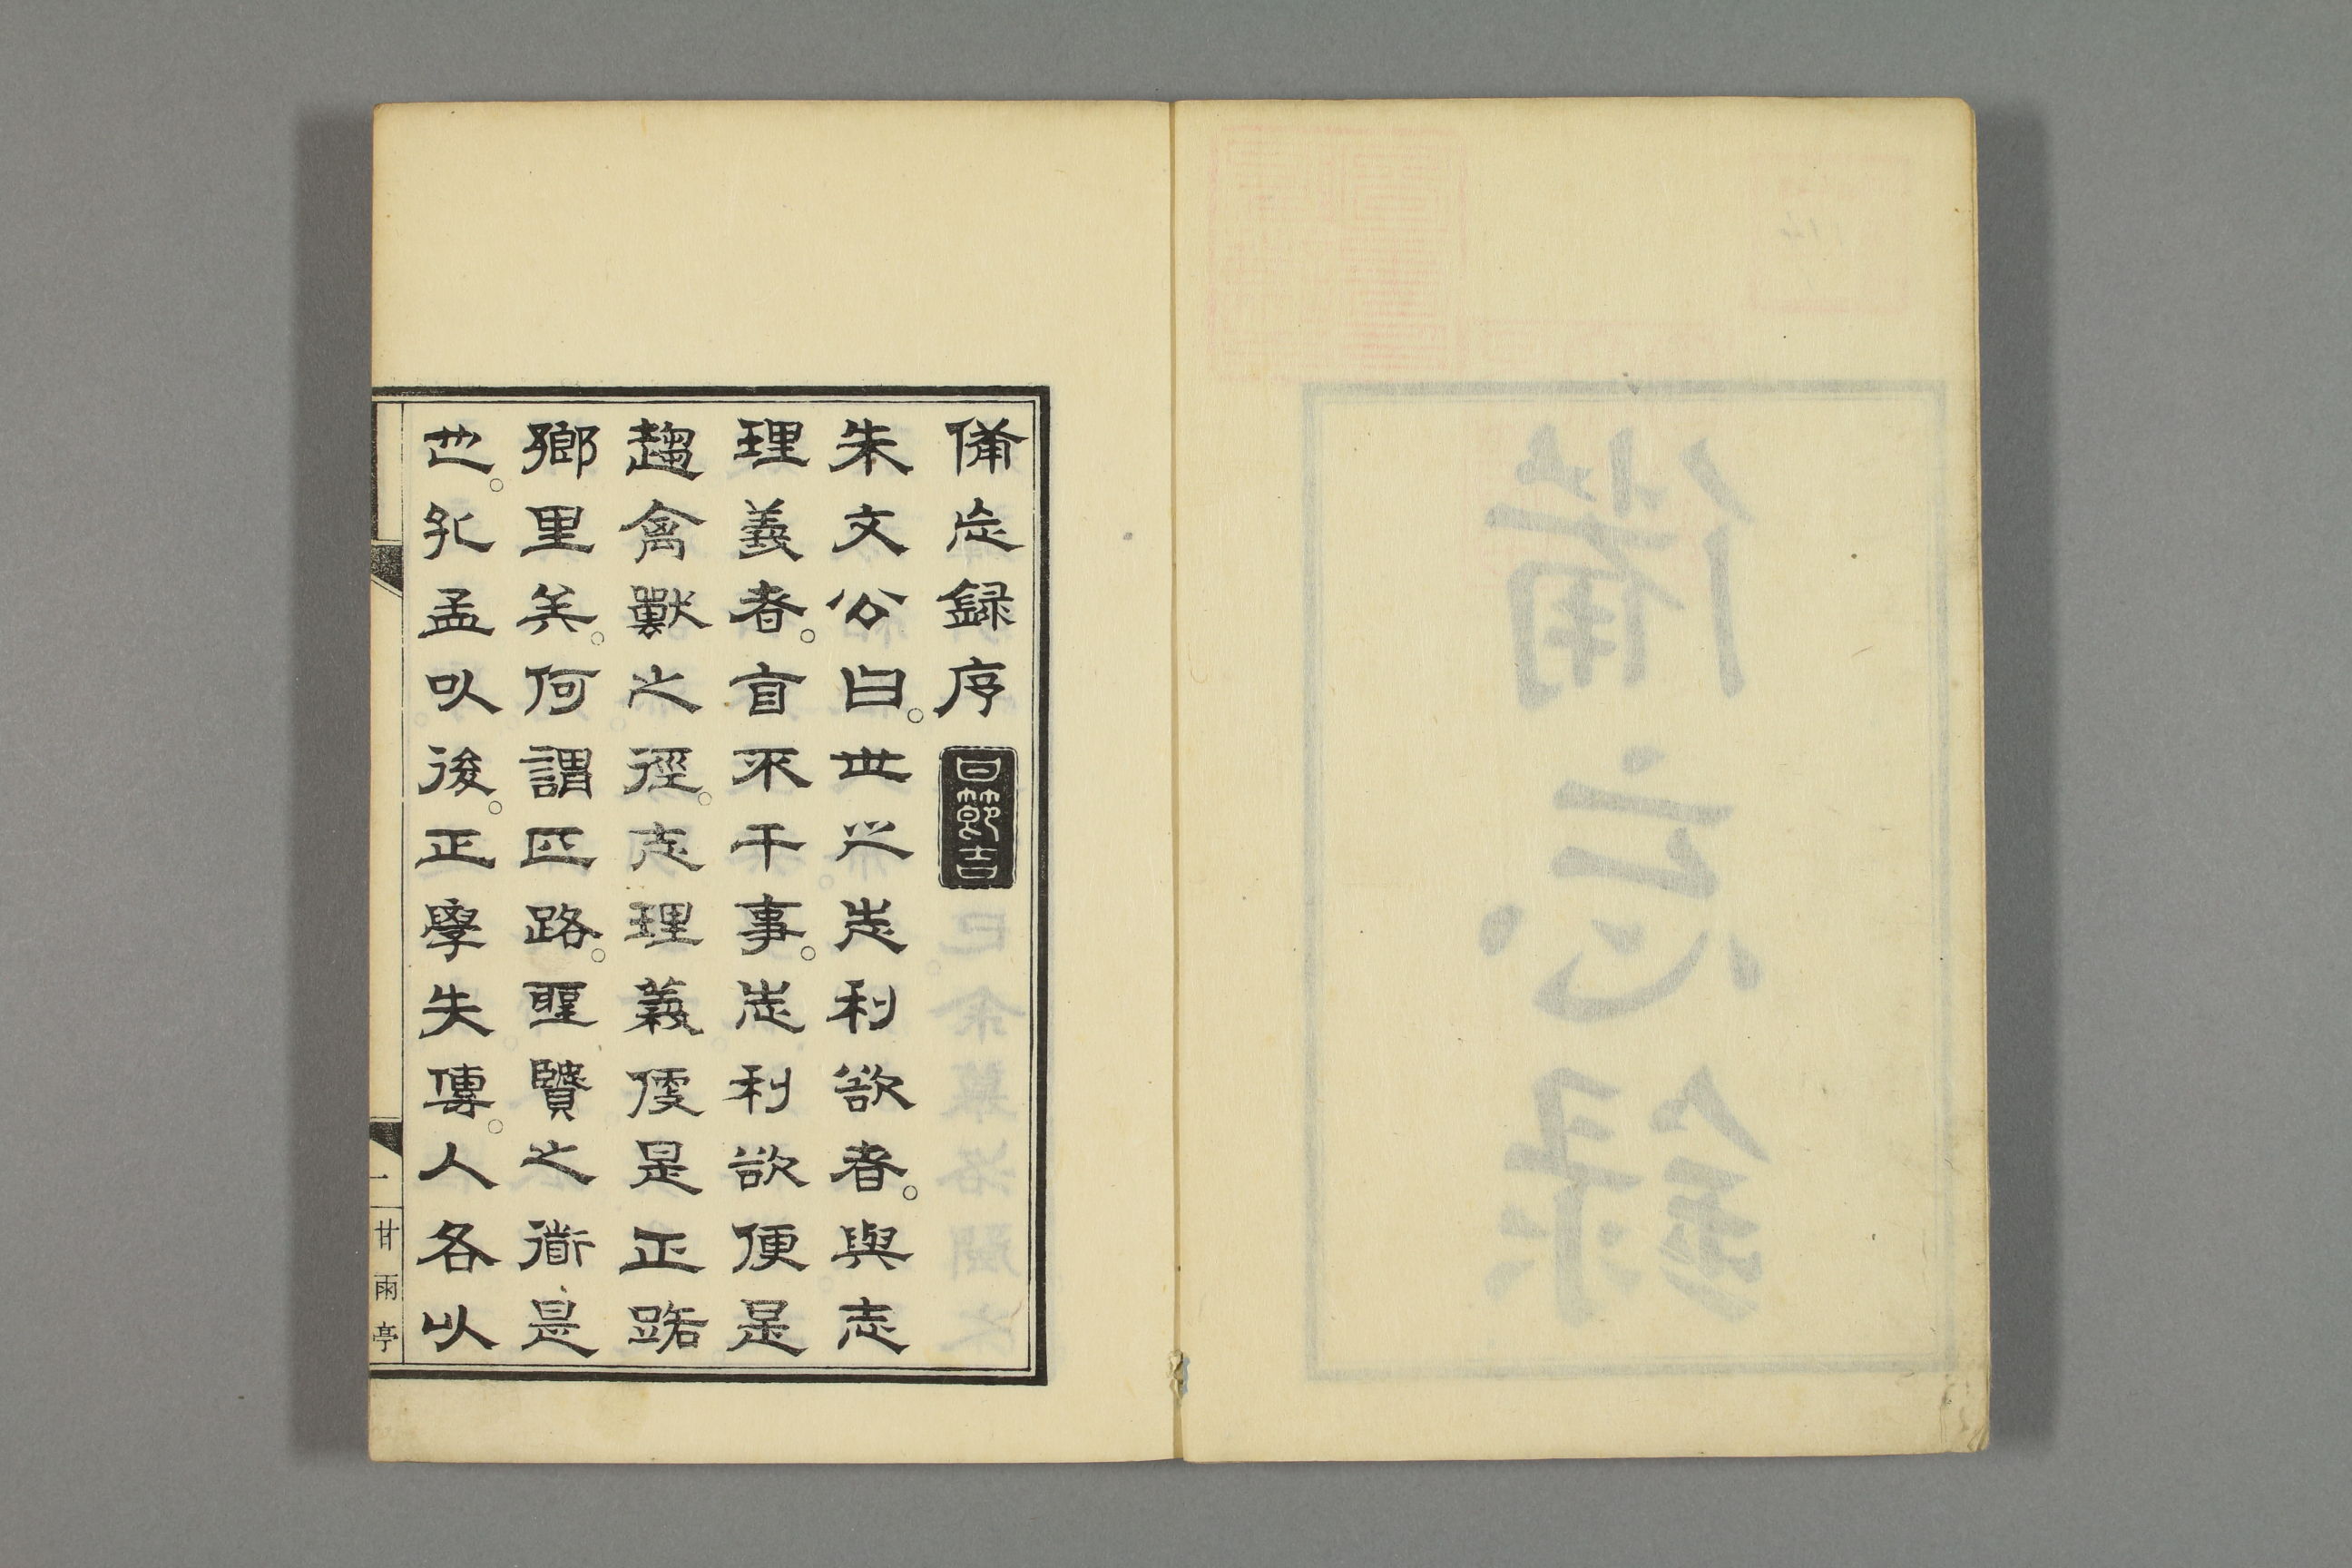 備忘録序
朱文公曰。世之志利欲者。與志
理義者。盲不干事。志利欲便是
趨禽獸之徑。志理義便是正路
鄉里矣。何謂正路。聖賢之道是
也。孔孟以後。正學失傳。人各以
一
甘雨亭
備忘錄